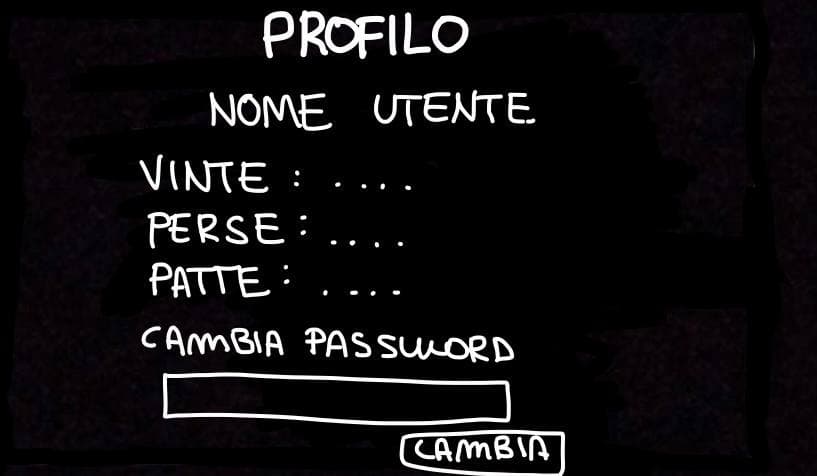 PROFILO
NOME UTENTE
VINTE: ....
PERSE: ....
PATTE: ....
CAMBIA PASSWORD
CAMBIA